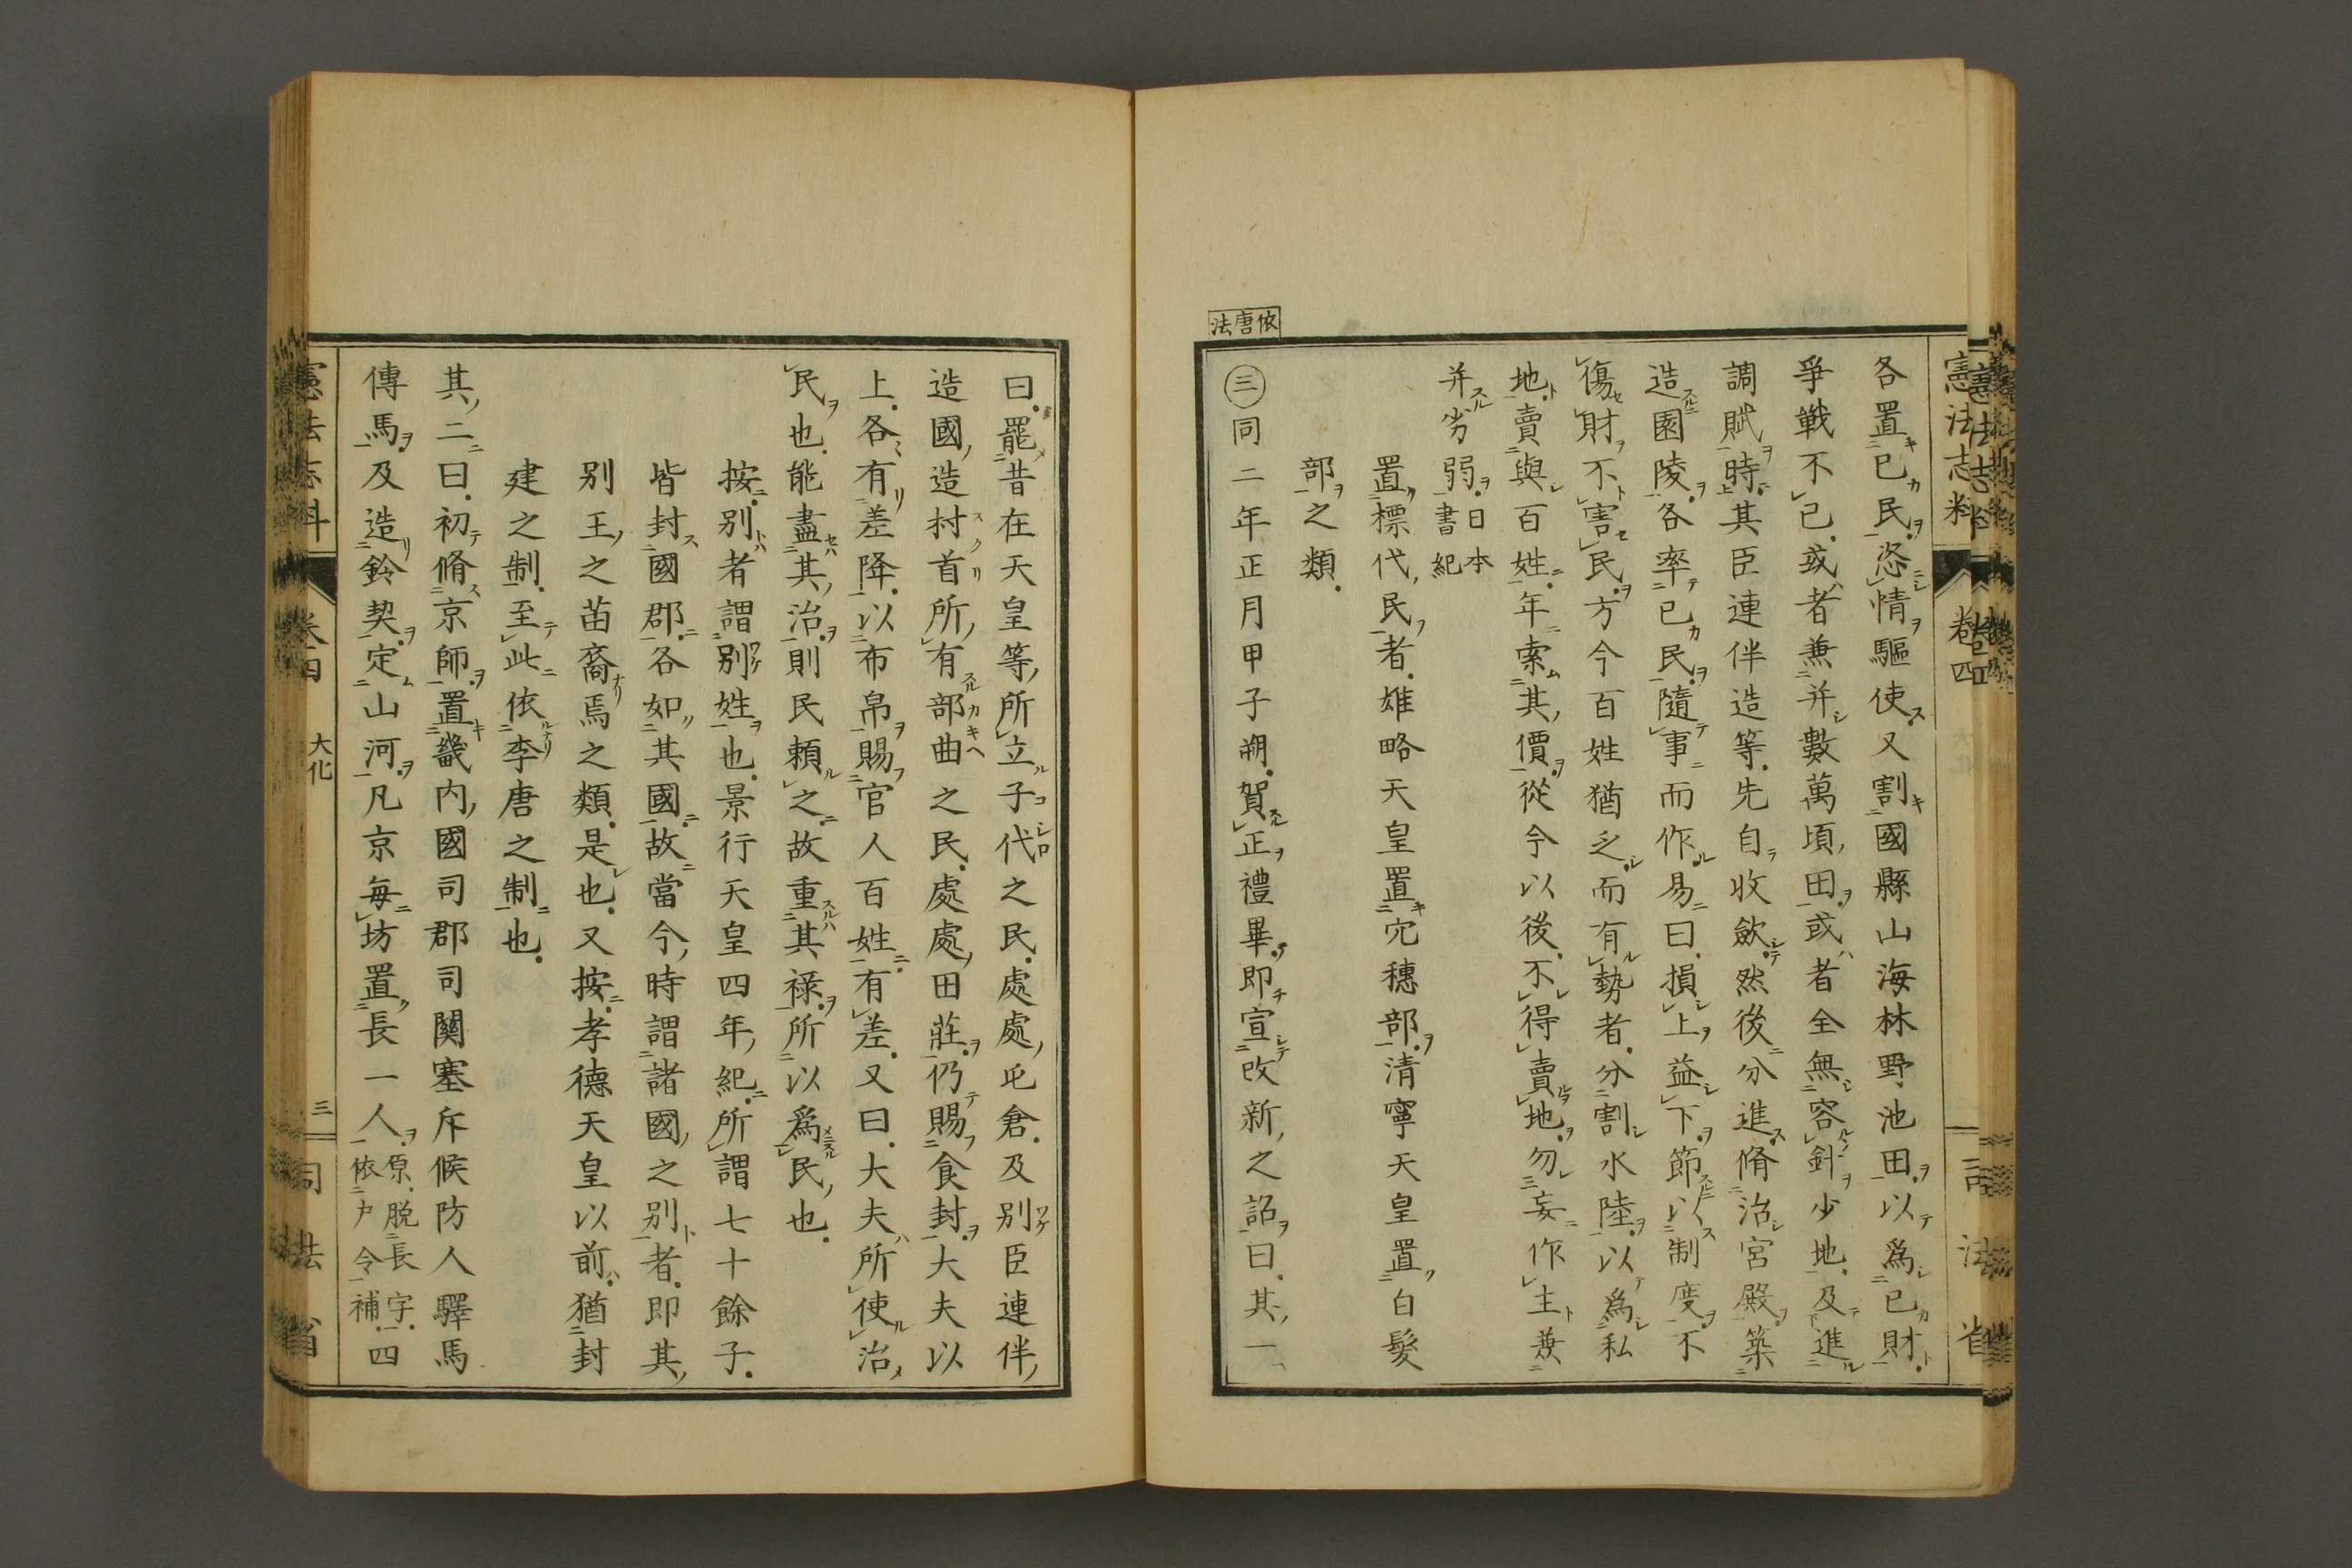 憲法志料
卷四
司法省
各置已民恣情驅使又割國縣山海林野池田以爲已財
爭戰不已或者兼并數萬頃田或者全無容針少地及進
調賦時其臣連伴造等先自收斂然後分進脩治宮殿築
造園陵各率已民隨事而作易曰損上益下節以制度不
傷財不害民方今百姓猶乏而有勢者分割水陸以爲私
地賣與百姓年索其價從今以後不得賣地勿妄作主兼
并劣弱日本書紀
置標代民者雄略天皇置穴穗部清寧天皇置白髮
部之類
依唐法
三同二年正月甲子朔賀正禮畢即宣改新之詔曰其一
曰罷昔在天皇等所立子代之民處處屯倉及別臣連伴
造國造村首所有部曲之民處處田莊仍賜食封大夫以
上各有差降以布帛賜官人百姓有差又曰大夫所使治
民也能盡其治則民賴之故重其祿所以爲民也
按別者謂別姓也景行天皇四年紀所謂七十餘子
皆封國郡各如其國故當今時謂諸國之別者即其
別王之苗裔焉之類是也又按孝德天皇以前猶封
建之制至此依李唐之制也
其二曰初脩京師置畿内國司郡司關塞斥候防人驛馬
傳馬及造鈴契定山河凡京每坊置長一人原脱長字依户令補四
憲法志料
卷四
大化
三
司法省